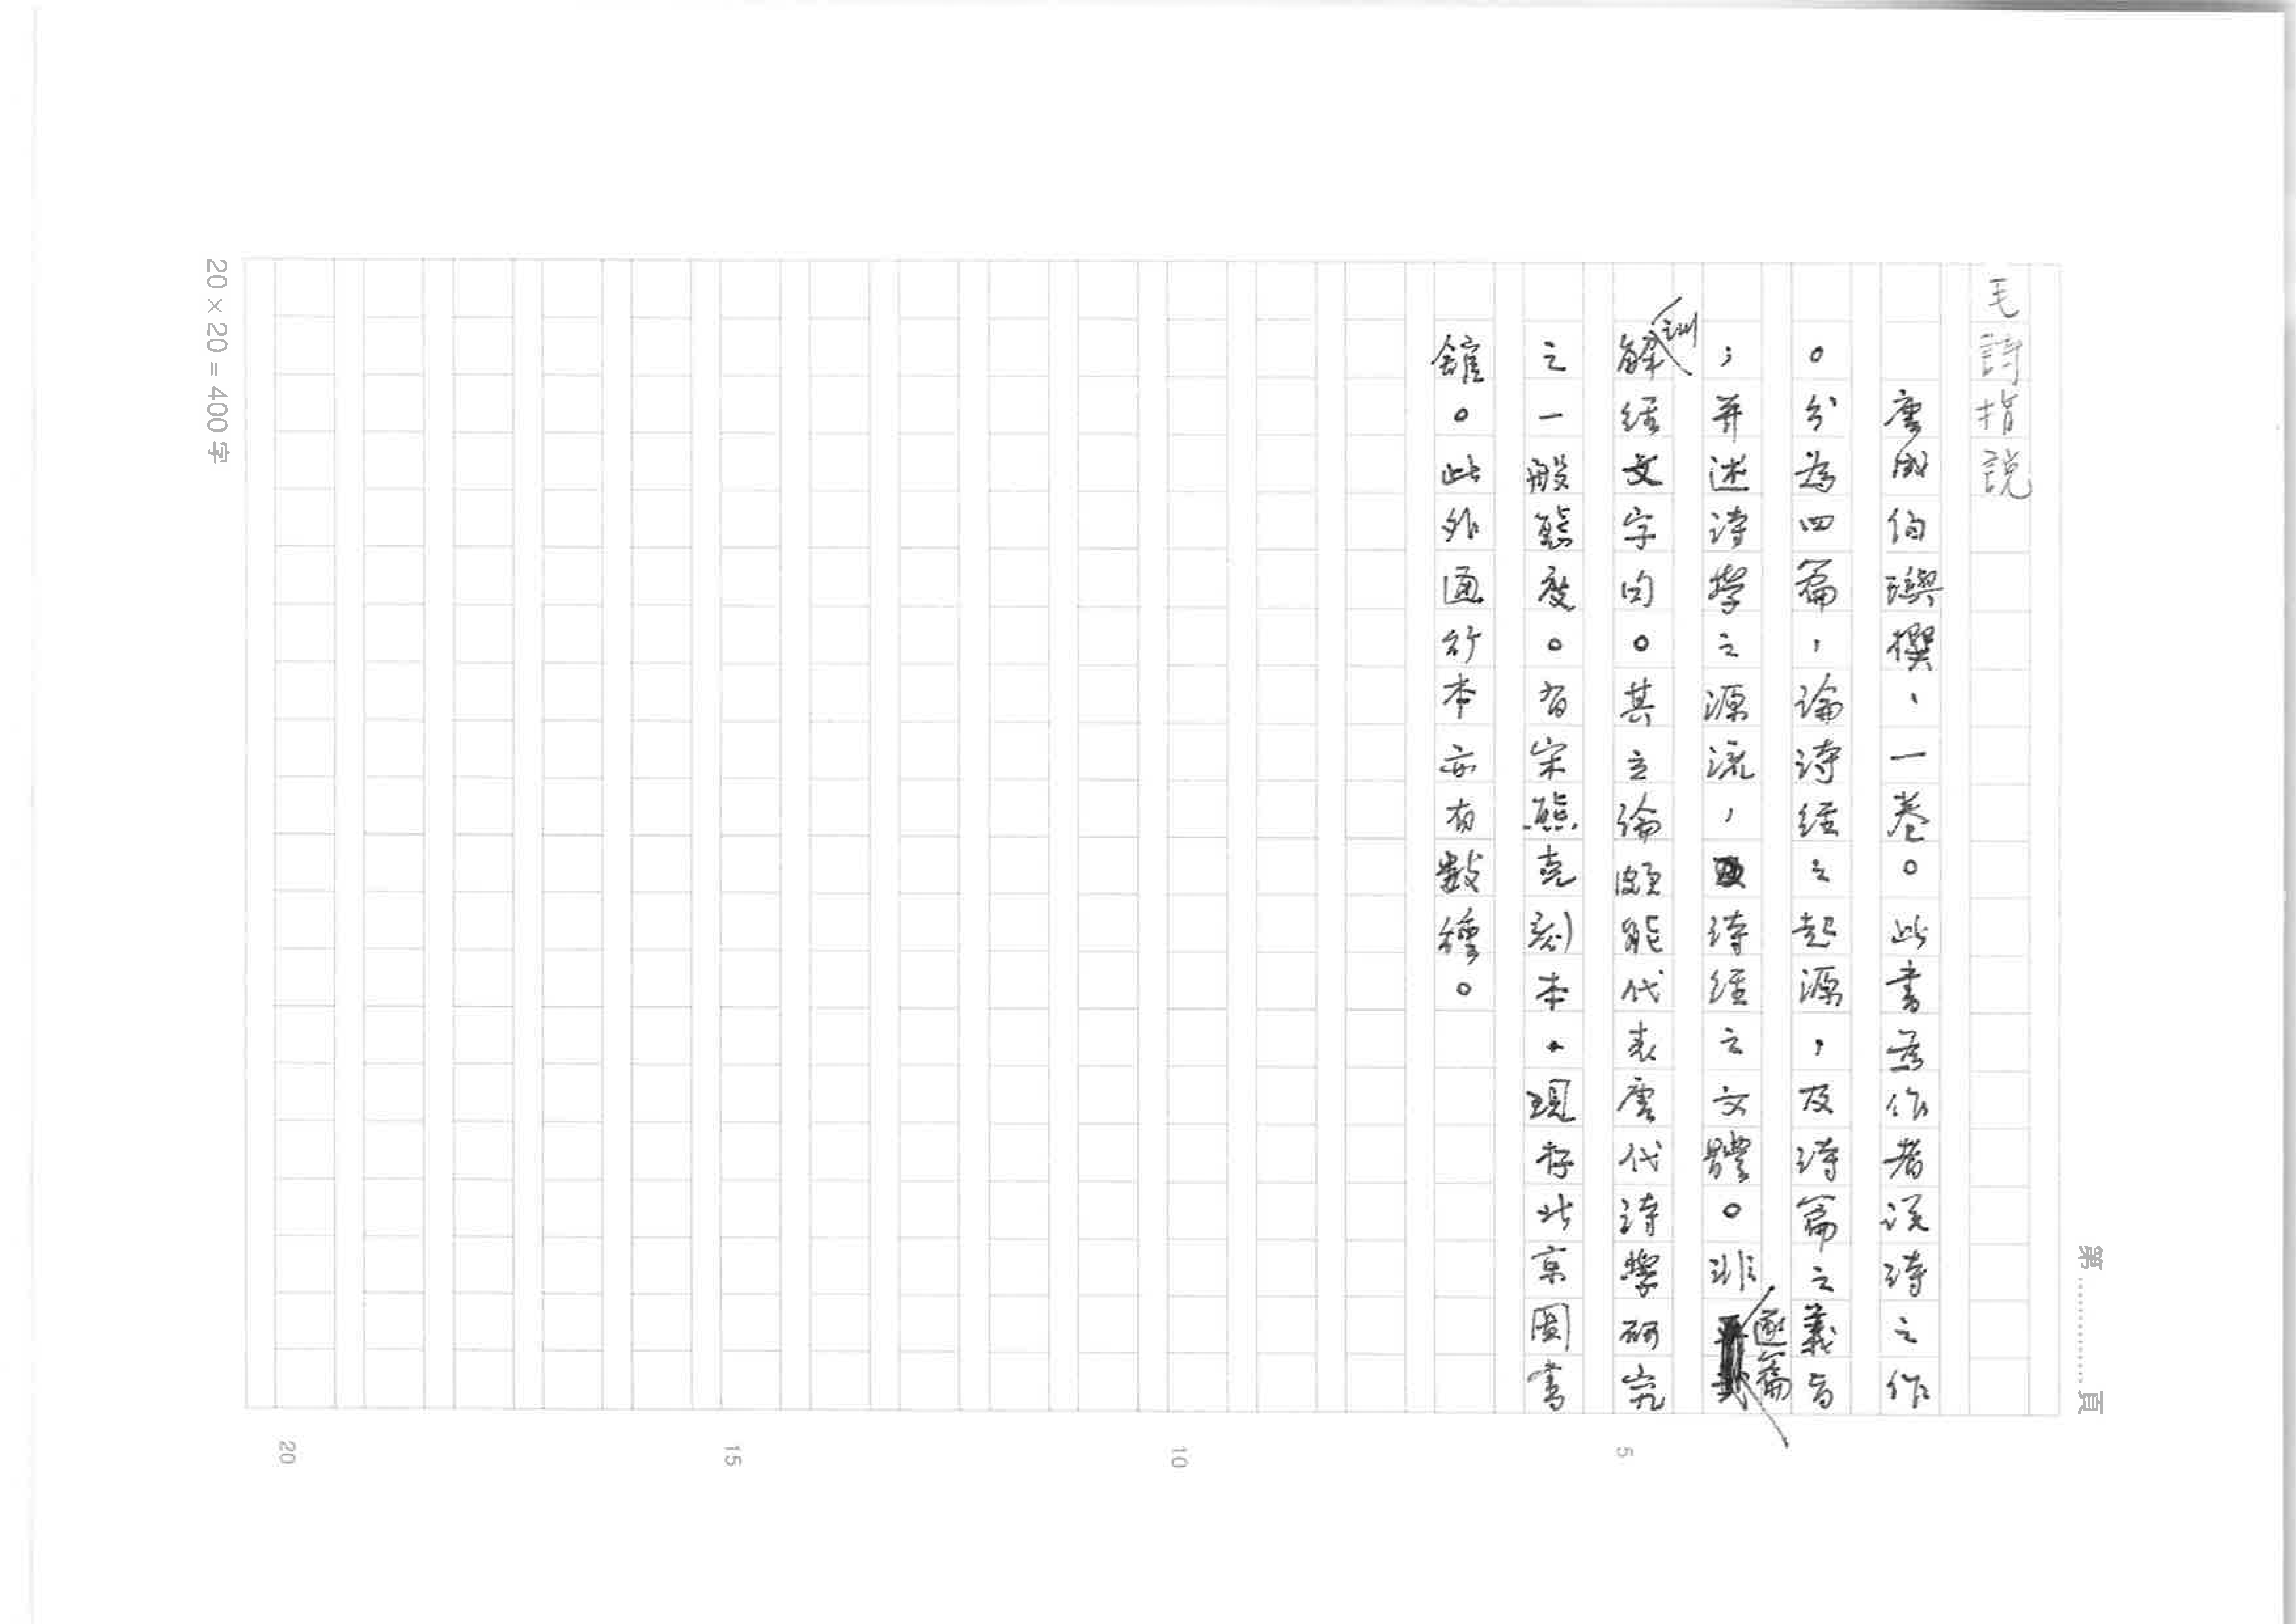 毛詩指說
唐成伯璵撰、一卷。此書為作者說詩之作
。分為四篇，論詩經之起源，及詩篇之義旨
；并述詩學之源流，及詩經之文體。非逐篇
訓解經文字句。其立論頗能代表唐代詩學研究
之一般態度。有宋熊克刻本。現存北京圖書
館。此外通行本亦有數種。
20×20=400字
第 頁
5
10
15
20